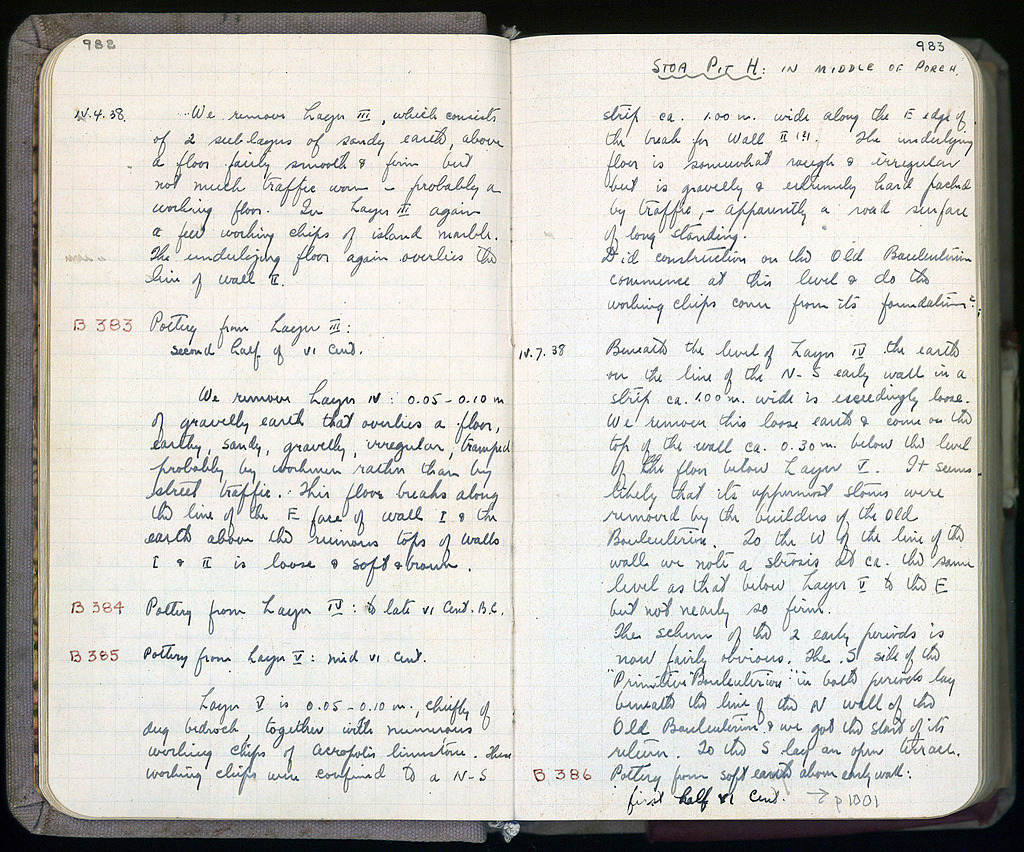 982
IV.4.38. We remove Layer III, which consists
of 2 sub layers of sandy earth, above
a floor fairly smooth & firm but
not much traffic worn - probably a
working floor. In Layer III again
a few working chips of island marble.
The underlying floor again overlies the
line of wall II.
B 383 Pottery from Layer III:
second half of VI Cent.
We remove Layer IV: 0.05-0.10 m
of gravelly earth that overlies a floor,
earthy, sandy, gravelly, irregular, tramped
probably by workmen rather than by
street traffic. This floor breaks along
the line of the E face of wall I & the
earth above the ruinous tops of walls
I & II is loose & soft & brown.
B 384 Pottery from Layer IV: to late VI Cent. B.C.
B 385 Pottery from Layer V: mid VI Cent.
Layer V is 0.05-0.10 m., chiefly of
dug bedrock, together with numerous
working chips of Acropolis limestone. These
working chips were confined to a N-S
983
STOA PIT H: IN MIDDLE OF PORCH.
strip ca. 1.00 m. wide along the E edge of
the break for Wall II. The underlying
floor is somewhat rough & irregular
but is gravelly & extremely hard packed
by traffic, - apparently a road surface
of long standing.
Did construction on the Old Bouleuterion
commence at this level & do the
working chips come from its foundations?
IV.7.38 Beneath the level of Layer IV the earth
on the line of the N-S early wall in a
strip ca. 1.00 m. wide is exceedingly loose.
We remove this loose earth & come on the
top of the wall ca. 0.30 m. below the level
of the floor below Layer V. It seems
likely that its uppermost stones were
removed by the builders of the Old
Bouleuterion. To the W of the line of the
wall we note a strosis at ca. the same
level as that below Layer V to the E
but not nearly so firm.
The scheme of the 2 early periods is
now fairly obvious. The S side of the
"Primitive Bouleuterion" in both periods lay
beneath the line of the N wall of the
Old Bouleuterion & we got the start of its
return. To the S lay an open terrace.
B 386 Pottery from soft earth above early wall:
first half VI Cent. → p 1001